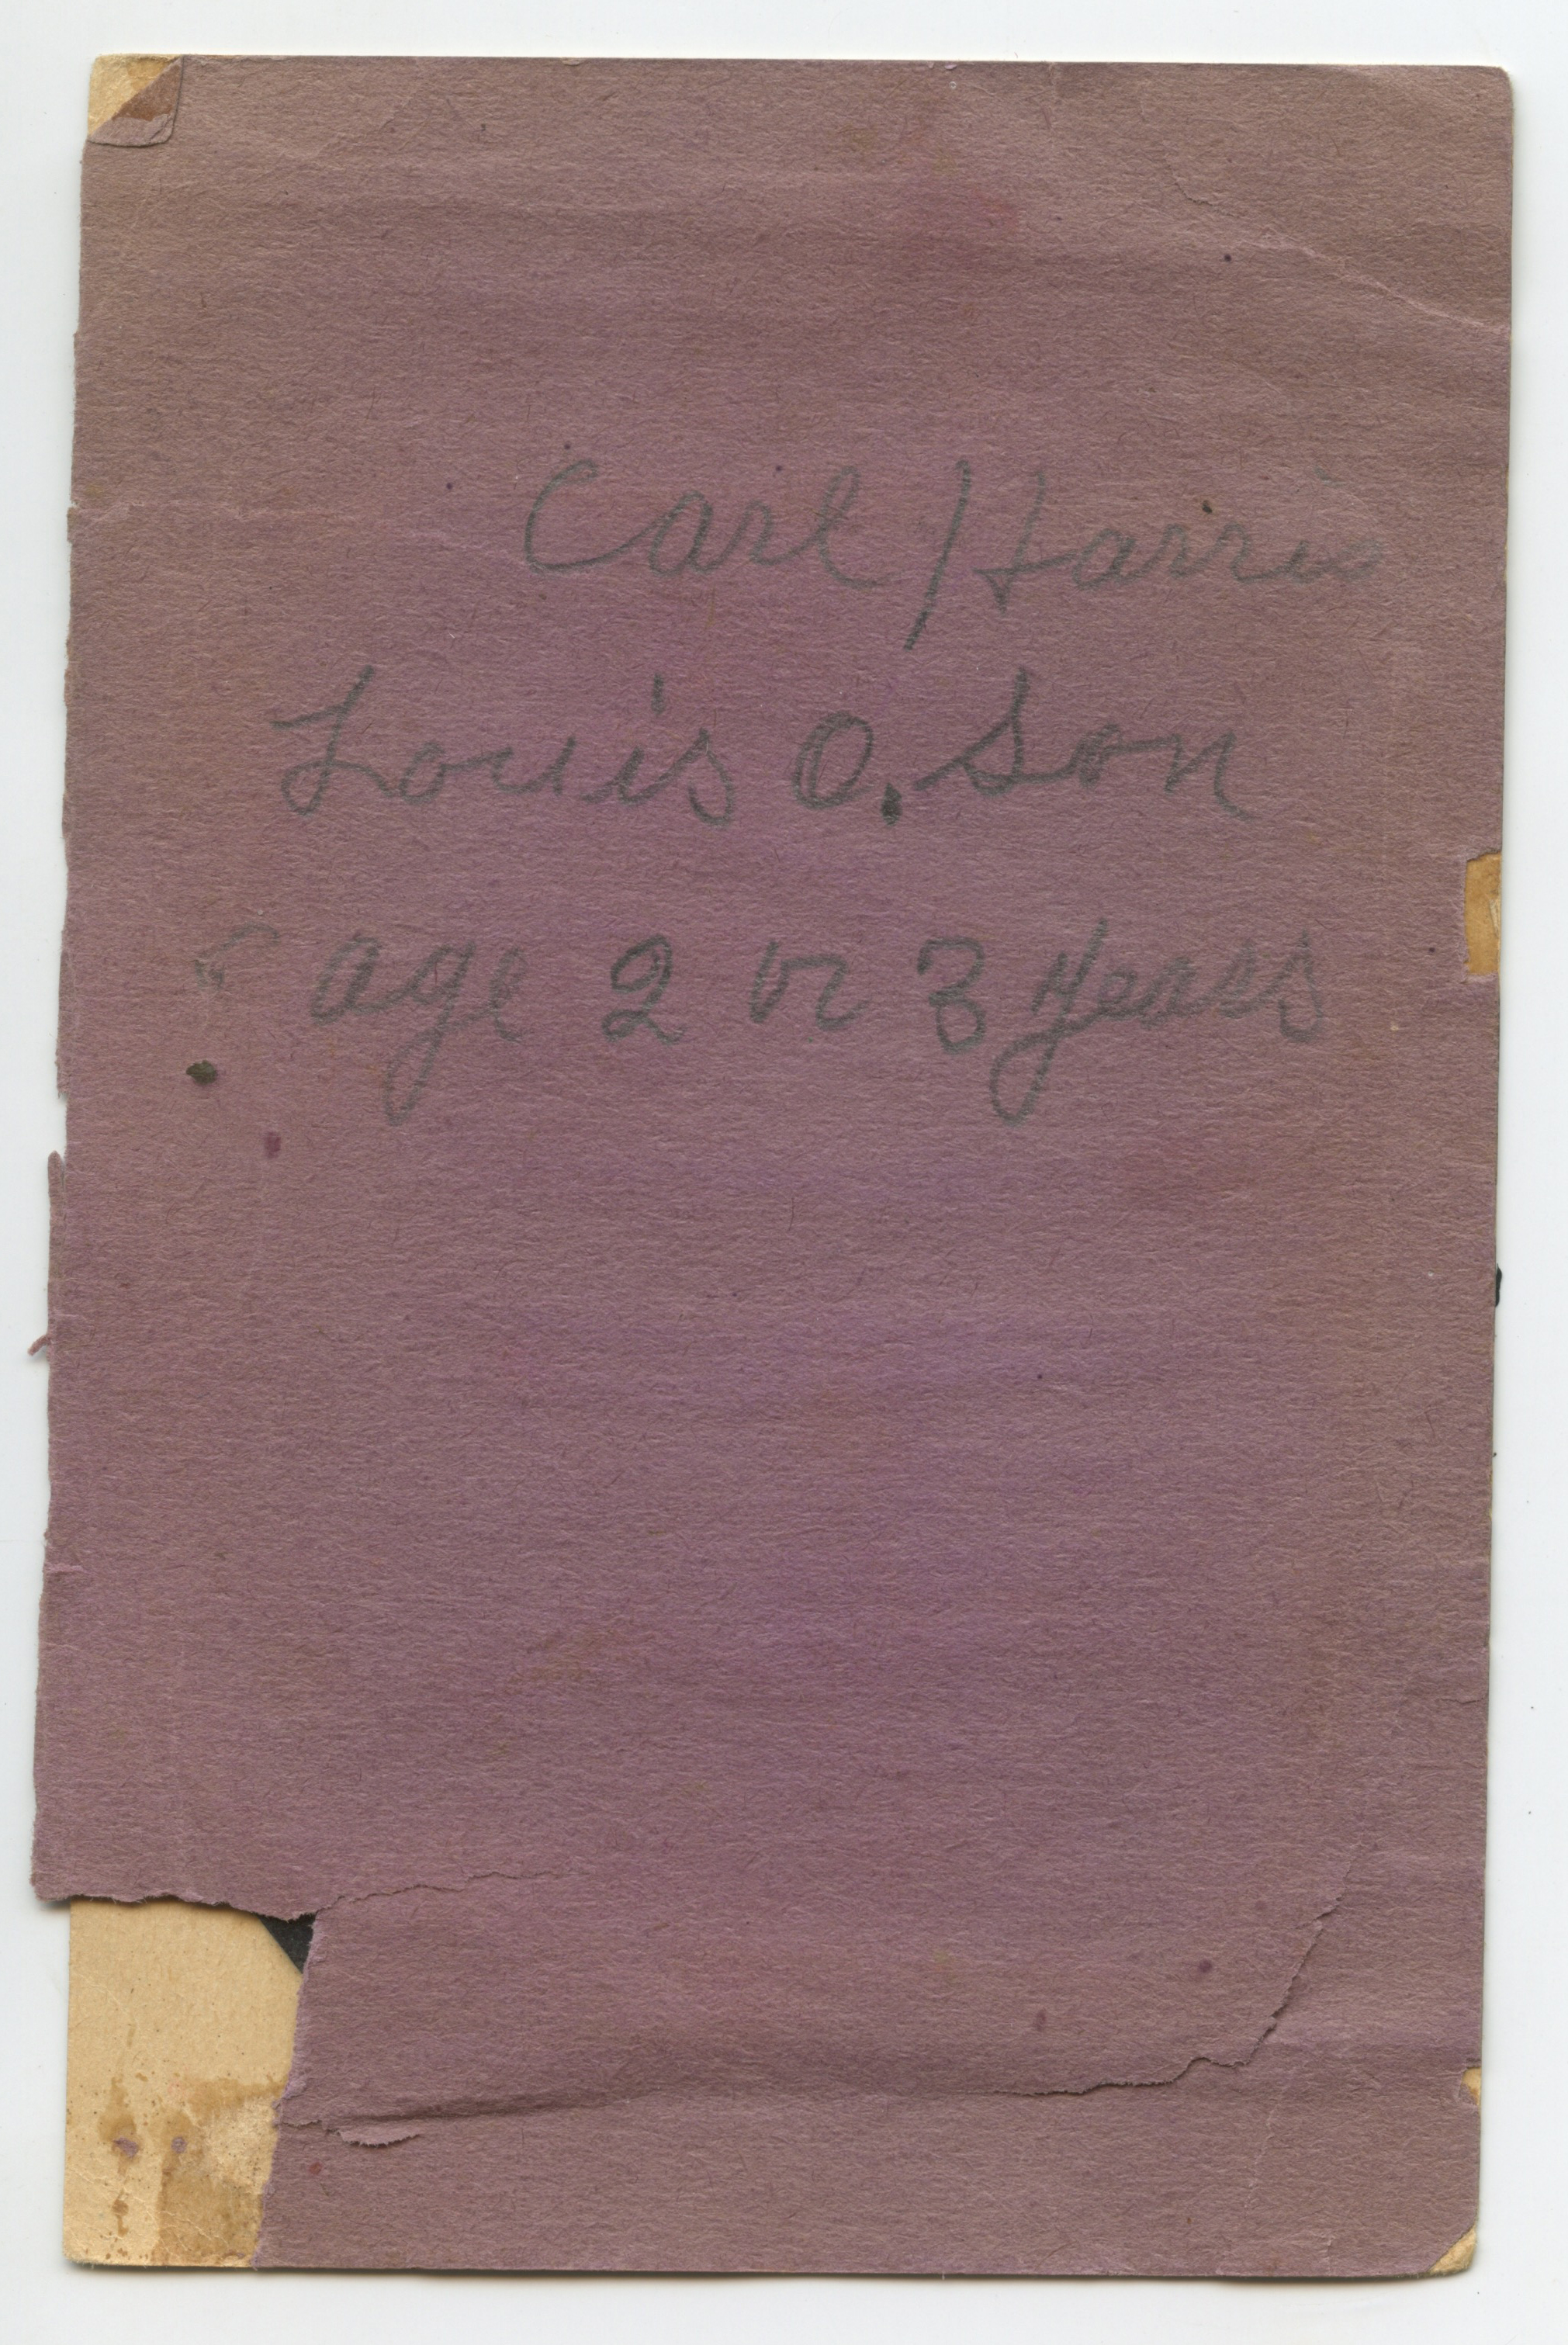 Carl Harris
Louis O. Son
age 2 or 3 years